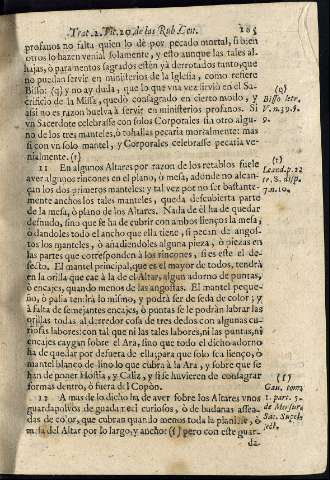 Trat. 2. Vic. 20. de las Rub. Lou. 105
profanos no falta quien lo dè por pecado mortal, si bien
otros lo hazen venial solamente, y esto aunque las tales al-
hajas, ò paramentos sagrados estèn yà derrotados tanto, que
no puedan servir en ministerios de la Iglesia, como refiere
Bisso: (q) y no ay duda, que lo que vna vez sirviò en el Sa-
crificio de la Missa, quedò consagrado en cierto modo, y
assi no es razon buelva à servir en ministerios profanos. Si
vn Sacerdote celebrasse con solos Corporales sin otro algu-
no de los tres manteles, ò tohallas pecaria mortalmente: mas
si con vn solo mantel, y Corporales celebrasse pecaria ve-
nialmente. (r)
(q)
Bisso letr.
V. n. 39. §.
9.
(r)
Leand. p. 22
tr. 8. disp.
7. n. 10.
11 En algunos Altares por razon de los retablos suele
aver algunos rincones en el plano, ò mesa, adonde no alcan-
çan los dos primeros manteles: y tal vez por no ser bastante-
mente anchos los tales manteles, queda descubierta parte
de la mesa, ò plano de los Altares. Nada de èl ha de quedar
desnudo, sino que se ha de cubrir con ambos lienços la mesa,
ò dandoles todo el ancho que ella tiene, si pecan de angos-
tos los manteles, ò añadiendoles alguna pieza, ò piezas en
las partes que corresponden à los rincones, si es este el de-
fecto. El mantel principal, que es el mayor de todos, tendrà
en la orilla que cae à la de el Altar, algun adorno de puntas,
ò encajes, quando menos de las angostas. El mantel peque-
ño, ò palia tendrà lo mismo, y podrà ser de seda de color; y
à falta de semejantes encajes, ò puntas se le podràn labrar las
orillas todas al derredor cosa de tres dedos con algunas cu-
riosas labores: con tal que ni las tales labores, ni las puntas, ni
encajes caygan sobre el Ara, sino que todo el dicho adorno
ha de quedar por defuera de ella; para que solo sea lienço, ò
mantel blanco de lino lo que cubra à la Ara, y sobre que se
han de poner Hostia, y Caliz, y si se huvieren de consagrar
formas dentro, ò fuera del Copòn.
12 A mas de lo dicho ha de aver sobre los Altares vnos
guardapolvos de guadameci curiosos, ò de badanas assea-
das de color, que cubran quando menos toda la planicie, ò
mesa del Altar por lo largo, y ancho: (s) pero con este guar-
da-
(s)
Gav. tom.
1. part. 5.
de Mensur.
Sac. Supel-
lect.